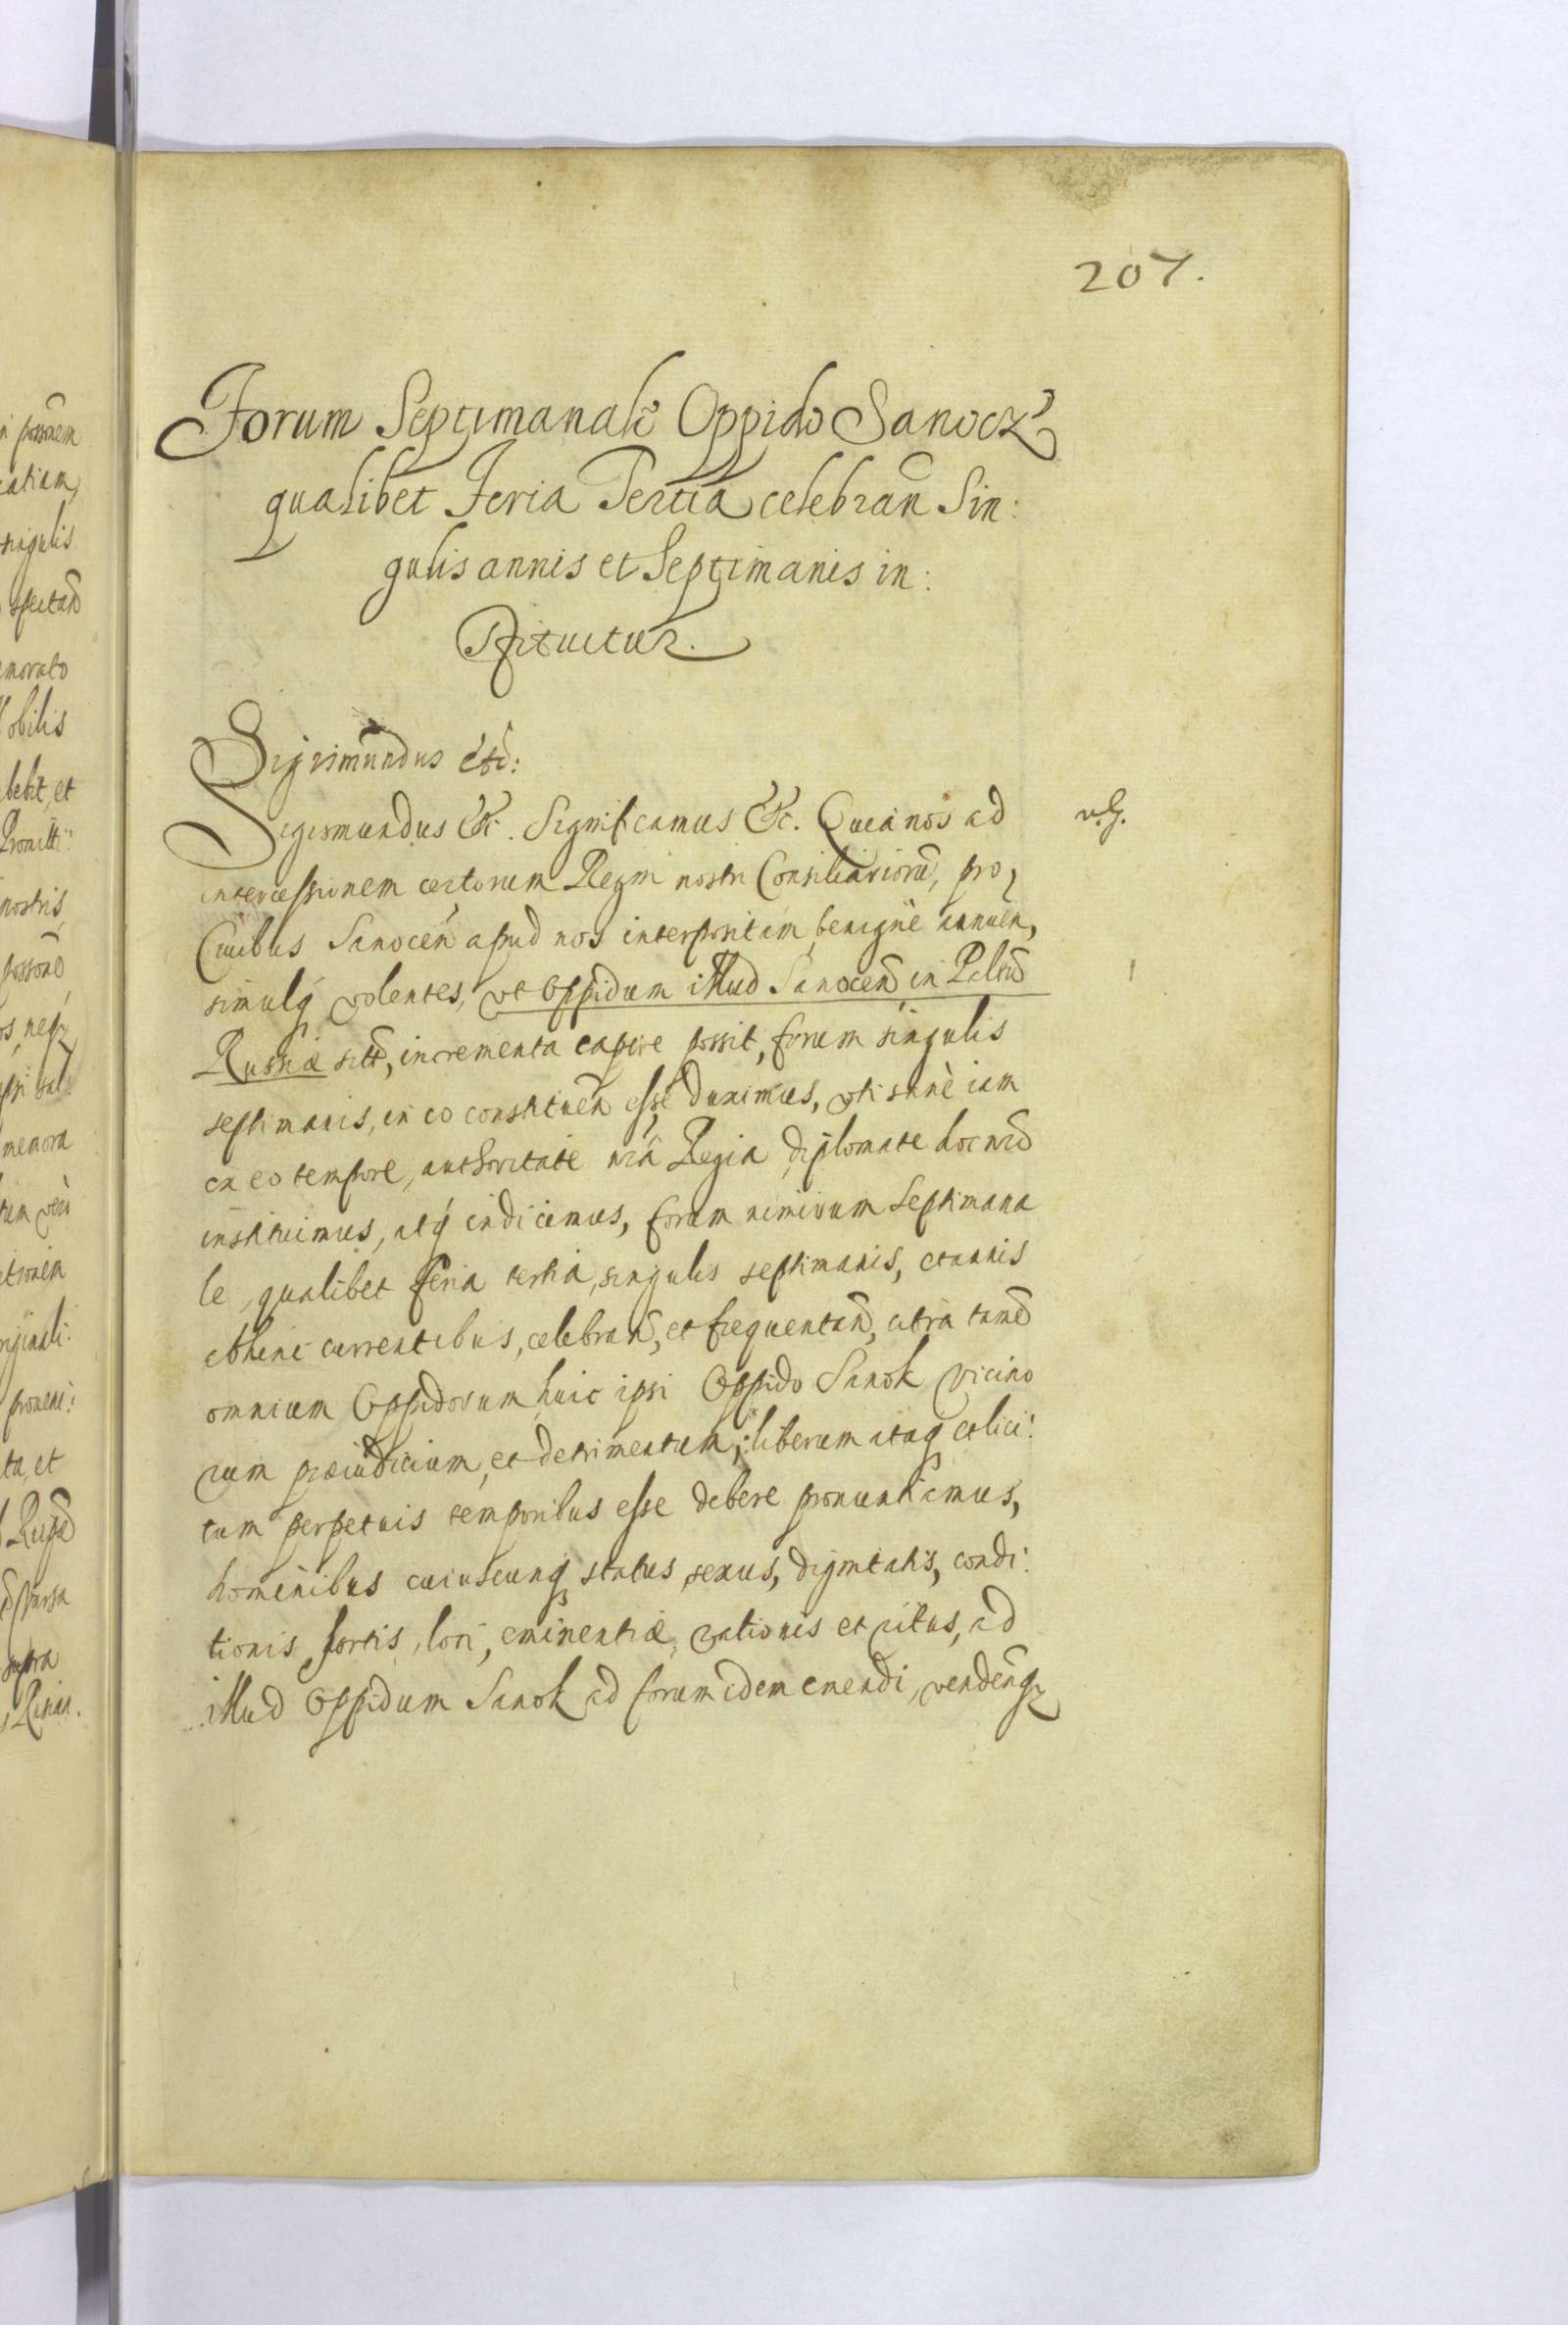 207.
Forum Septimanale Oppido Sanocz
qualibet Feria Tertia celebran̄ Sin:
gulis annis et Septimanis in:
stituitur.
Sigismundus Etc:
Sigismundus Etc. Significamus Etc. Quia nos ad
v.G.
intercessionem certorum Regni nostri Consiliariorū, pro
Civibus Sanocen̄ apud nos interpositam benignè annuen,
simulq́ volentes, ut Oppidum illud Sanocen̄ in Palatū
Russiæ sitū, incrementa capere possit, forum singulis
septimanis, in eo constituen̄ esse duximus, uti sanè iam
ex eo tempore, authoritate nr̄a Regia diplomate hoc nr̄o
instituimus, atq́ indicimus, forum nimirum Septimana
le, qualibet feria tertia, singulis septimanis, et annis
abhinc currentibus, celebran̄, et frequentan̄, citra tamē
omnium Oppidorum huic ipsi Oppido Sanok vicino
rum præiudicium, et detrimentum; liberum itaq́ et lici:
tum perpetuis temporibus esse debere pronuntiamus,
hominibus cuiuscunq́ status, sexus, dignitatis, condi:
tionis, sortis, lori, eminentiæ, rationis et ritus, ad
illud Oppidum Sanok ad forum idem emendi, vendenq́
in possōnem
singulis
morato
nobilis
et
nostris
ta, et
supra